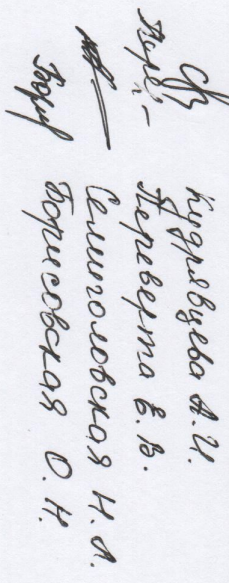 Кудрявцева А.И.
Переверта Е.В.
Семиголовская Н.А.
Борисовская О.Н.